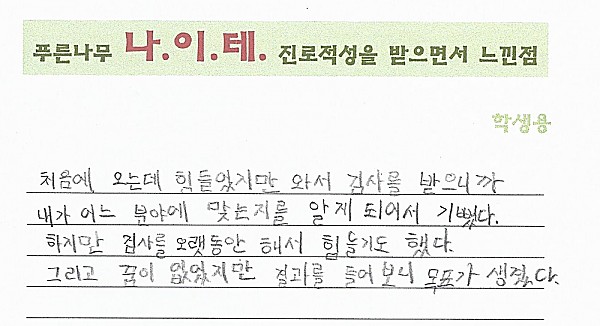 푸른나무 나.이.테. 진로적성을 받으면서 느낀점
학생용
처음에 오는데 힘들었지만 와서 검사를 받으니까
내가 어느 분야에 맞는지를 알게 되어서 기뻤다.
하지만 검사를 오랫동안 해서 힘들기도 했다.
그리고 꿈이 없었지만 결과를 들어보니 목표가 생겼다.